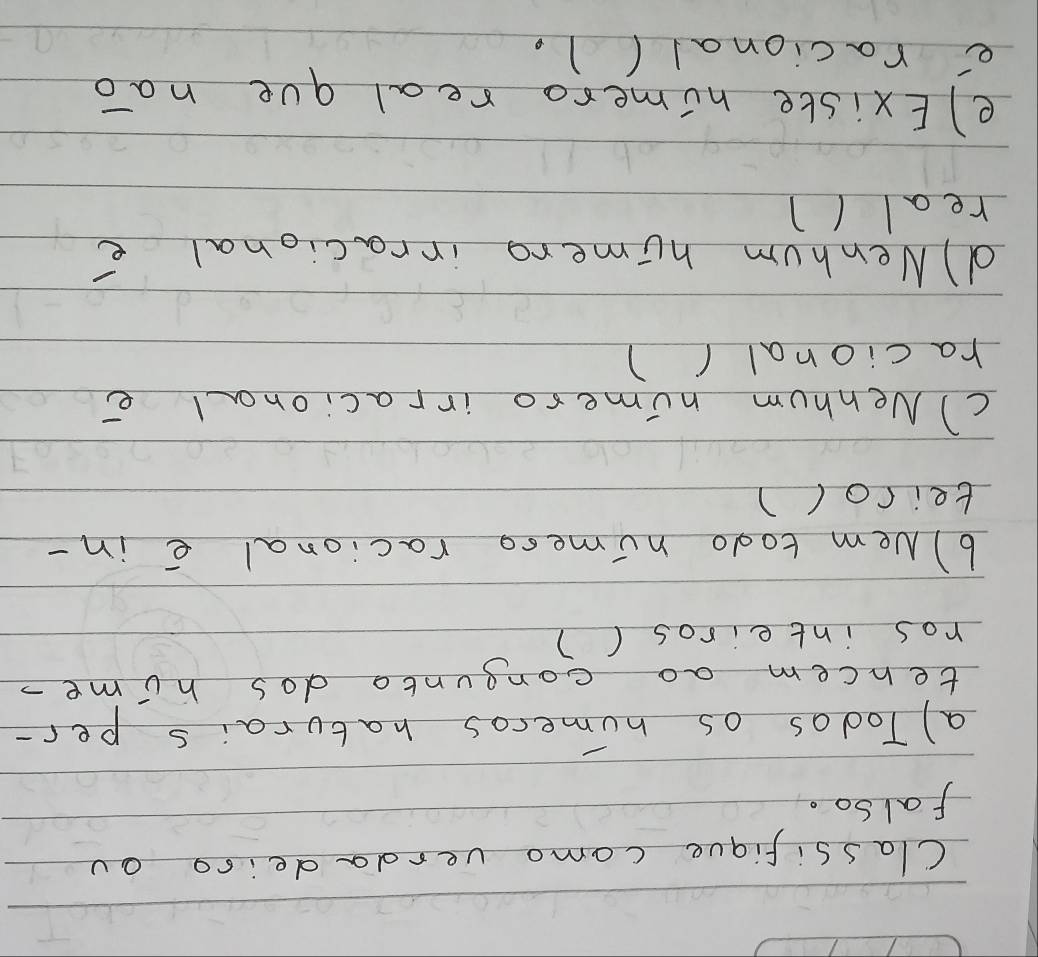 Classifique como verdadeiro ou
falso.
a) Todos os números naturais per-
tencem ao congunto dos núme-
ros inteiros ( )
b) Nem todo número racional é in-
teiro ( )
c) Nenhum número irracional é
racional ( )
d) Nenhum número irracional é
real ( )
e) Existe número real que não
é racional ( ).